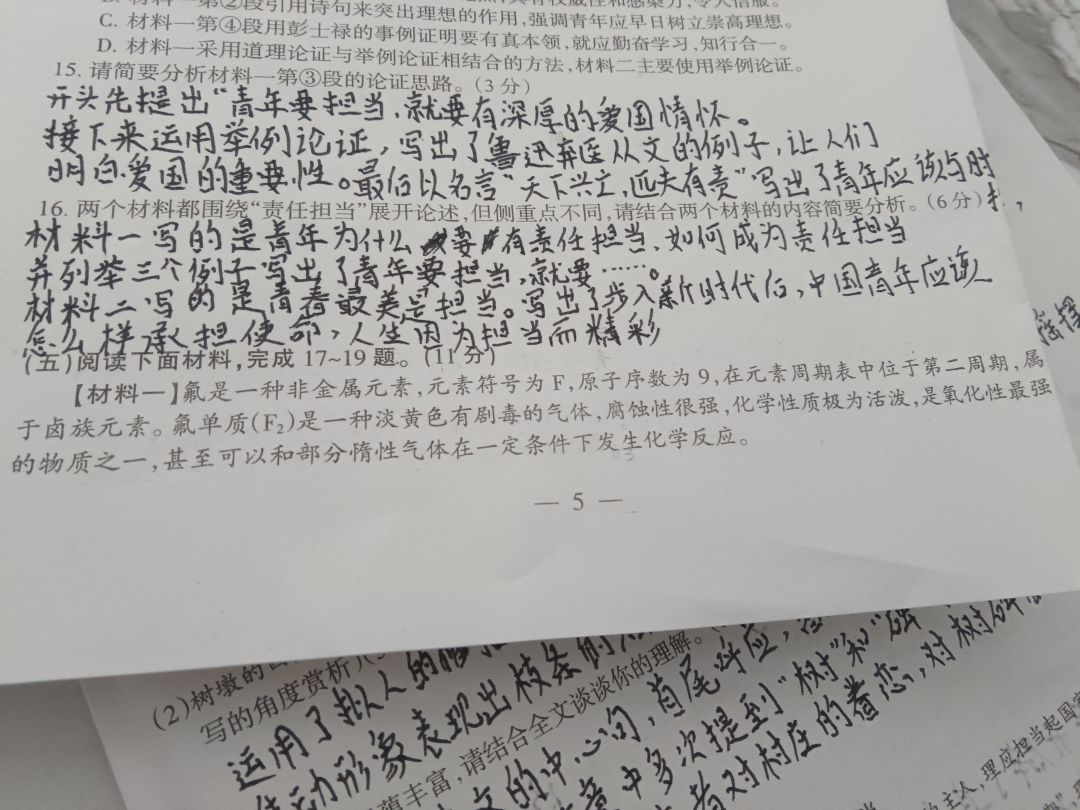 B. 材料一第②段引用诗句来突出理想的作用,强调青年应早日树立崇高理想。
C. 材料一第④段用彭士禄的事例证明要有真本领,就应勤奋学习,知行合一。
D. 材料一采用道理论证与举例论证相结合的方法,材料二主要使用举例论证。
15. 请简要分析材料一第③段的论证思路。(3分)
开头先提出“青年要担当,就要有深厚的爱国情怀。
接下来运用举例论证,写出了鲁迅弃医从文的例子,让人们
明白爱国的重要性。最后以名言“天下兴亡,匹夫有责”写出了青年应该与时
16. 两个材料都围绕“责任担当”展开论述,但侧重点不同,请结合两个材料的内容简要分析。(6分)
材料一写的是青年为什么要有责任担当、如何成为责任担当
并列举三个例子写出了青年要担当,就要……。
材料二写的是青春最美是担当。写出了步入新时代后,中国青年应该
怎么样承担使命,人生因为担当而精彩
(五)阅读下面材料,完成17~19题。(11分)
【材料一】氟是一种非金属元素,元素符号为F,原子序数为9,在元素周期表中位于第二周期,属
于卤族元素。氟单质(F₂)是一种淡黄色有剧毒的气体,腐蚀性很强,化学性质极为活泼,是氧化性最强
的物质之一,甚至可以和部分惰性气体在一定条件下发生化学反应。
— 5 —
(2)树墩的
写的角度赏析)
运用了拟人的
动形象表现出枝条
丰富,请结合全文谈谈你的理解。
文的中心句,首尾呼应,
章中多次提到“树”和
有对村庄的眷恋,对树
的主人,理应担当起国